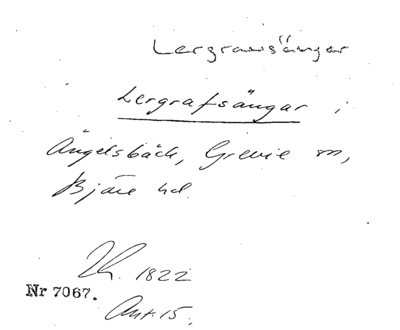 Lergravsängar
Lergrafsängar i
Ängelsbäck, Grevie sn,
Bjäre hd.
1822
Nr 7067.
Ant. 15.